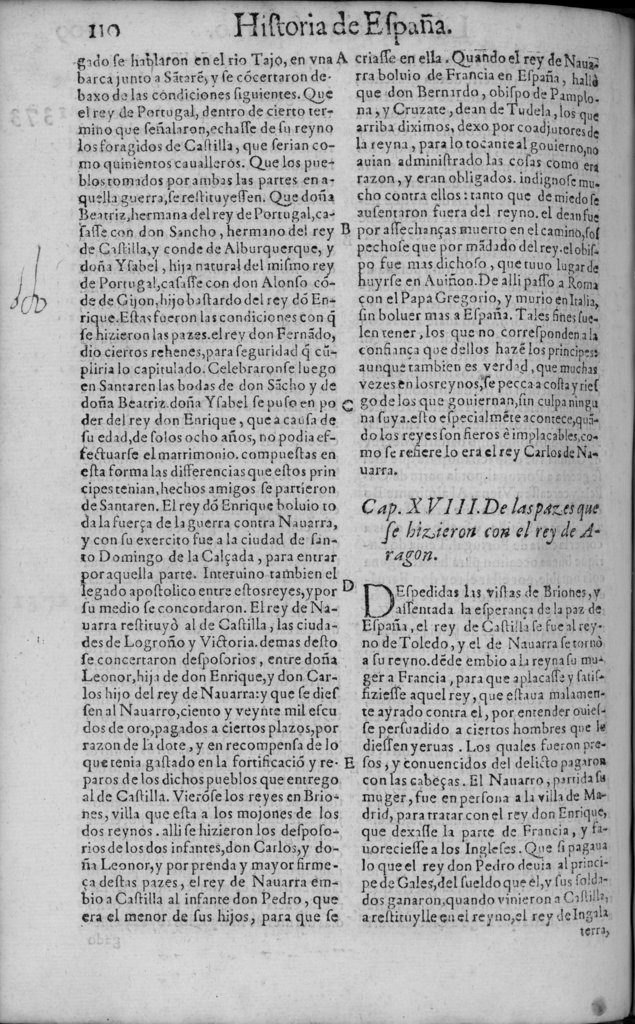 110 Hiſtoria de Eſpaña.
gado ſe hablaron en el rio Tajo, en vna
barca junto a Sātarē, y ſe cōcertaron de-
baxo de las condiciones ſiguientes. Que
el rey de Portugal, dentro de cierto ter-
mino que ſeñalaron, echaſſe de ſu reyno
los foragidos de Caſtilla, que ſerian co-
mo quinientos caualleros. Que los pue-
blos tomados por ambas las partes en a-
quella guerra, ſe reſtituyeſſen. Que doña
Beatriz, hermana del rey de Portugal, ca-
ſaſſe con don Sancho, hermano del rey
de Caſtilla, y conde de Alburquerque, y
doña Yſabel, hija natural del miſmo rey
de Portugal, caſaſſe con don Alonſo cō-
de de Gijon, hijo baſtardo del rey dō En-
rique. Eſtas fueron las condiciones con q̄
ſe hizieron las pazes. el rey don Fernādo,
dio ciertos rehenes, para ſeguridad q̄ cū-
pliria lo capitulado. Celebraronſe luego
en Santaren las bodas de don Sācho y de
doña Beatriz. doña Yſabel ſe puſo en po
der del rey don Enrique, que a cauſa de
ſu edad, de ſolos ocho años, no podia ef-
fectuarſe el matrimonio. compueſtas en
eſta forma las differencias que eſtos prin
cipes tenian, hechos amigos ſe partieron
de Santaren. El rey dō Enrique boluio to
da la fuerça de la guerra contra Nauarra,
y con ſu exercito fue a la ciudad de ſan-
to Domingo de la Calçada, para entrar
por aquella parte. Interuino tambien el
legado apoſtolico entre eſtos reyes, y por
ſu medio ſe concordaron. El rey de Na-
uarra reſtituyò al de Caſtilla, las ciuda-
des de Logroño y Victoria. demas deſto
ſe concertaron deſpoſorios, entre doña
Leonor, hija de don Enrique, y don Car-
los hijo del rey de Nauarra: y que ſe dieſ
ſen al Nauarro, ciento y veynte mil eſcu
dos de oro, pagados a ciertos plazos, por
razon de la dote, y en recompenſa de lo
que tenia gaſtado en la fortificació y re-
paros de los dichos pueblos que entrego
al de Caſtilla. Vierōſe los reyes en Brio-
nes, villa que eſta a los mojones de los
dos reynos. alli ſe hizieron los deſpoſo-
rios de los dos infantes, don Carlos, y do-
ña Leonor, y por prenda y mayor firme-
ça deſtas pazes, el rey de Nauarra em-
bio a Caſtilla al infante don Pedro, que
era el menor de ſus hijos, para que ſe
A
B
C
D
E
criaſſe en ella. Quando el rey de Naua-
rra boluio de Francia en Eſpaña, hallò
que don Bernardo, obiſpo de Pamplo-
na, y Cruzate, dean de Tudela, los que
arriba diximos, dexo por coadjutores de
la reyna, para lo tocante al gouierno, no
auian adminiſtrado las coſas como era
razon, y eran obligados. indignoſe mu-
cho contra ellos: tanto que de miedo ſe
auſentaron fuera del reyno. el dean fue
por aſſechanças muerto en el camino, ſoſ
pechoſe que por mādado del rey. el obiſ-
po fue mas dichoſo, que tuuo lugar de
huyrſe en Auiñon. De alli paſſo a Roma
con el Papa Gregorio, y murio en Italia,
ſin boluer mas a Eſpaña. Tales fines ſue-
len tener, los que no correſponden a la
confiança que dellos hazē los principes:
aunque tambien es verdad, que muchas
vezes en los reynos, ſe pecca a coſta y rieſ
go de los que gouiernan, ſin culpa ningu
na ſuya. eſto eſpecialmēte acontece, quā-
do los reyes ſon fieros è implacables, co-
mo ſe refiere lo era el rey Carlos de Na-
uarra.
Cap. XVIII. De las pazes que
ſe hizieron con el rey de A-
ragon.
DEſpedidas las viſtas de Briones, y
aſſentada la eſperança de la paz de
Eſpaña, el rey de Caſtilla ſe fue al rey-
no de Toledo, y el de Nauarra ſe tornò
a ſu reyno. dēde embio a la reyna ſu mu-
ger a Francia, para que aplacaſſe y ſatiſ-
fizieſſe aquel rey, que eſtaua malamen-
te ayrado contra el, por entender ouieſ-
ſe perſuadido a ciertos hombres que le
dieſſen yeruas. Los quales fueron pre-
ſos, y conuencidos del delicto pagaron
con las cabeças. El Nauarro, partida ſu
muger, fue en perſona a la villa de Ma-
drid, para tratar con el rey don Enrique,
que dexaſſe la parte de Francia, y fa-
uorecieſſe a los Ingleſes. Que ſi pagaua
lo que el rey don Pedro deuia al princi-
pe de Gales, del ſueldo que el, y ſus ſolda-
dos ganaron, quando vinieron a Caſtilla,
a reſtituylle en el reyno, el rey de Ingala
terra,